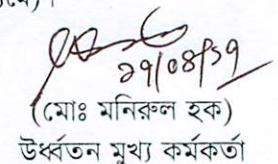 ২৭/০৪/১৭
(মোঃ মনিরুল হক)
উর্ধ্বতন মুখ্য কর্মকর্তা